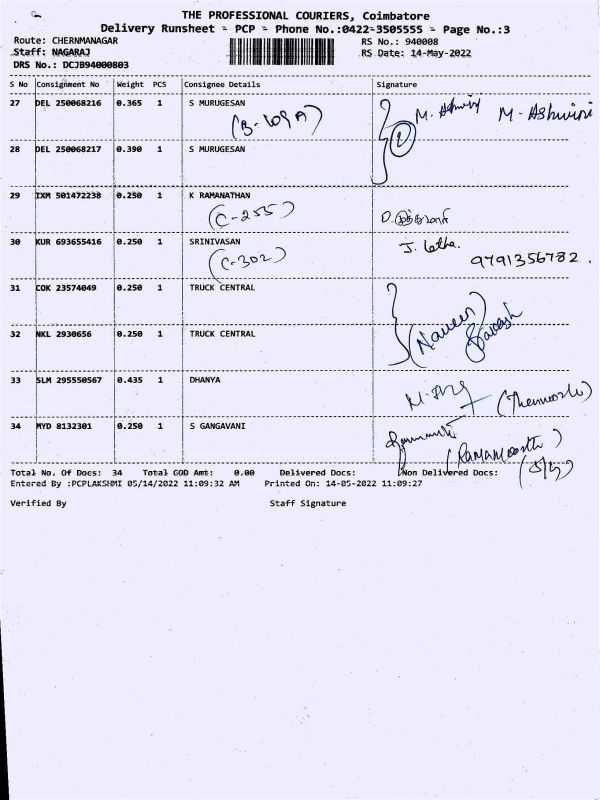 THE PROFESSIONAL COURIERS, Coimbatore
Delivery Runsheet - PCP - Phone No.:0422-3505555 - Page No.:3
Route: CHERNMANAGAR
RS No.: 940008
Staff: NAGARAJ
RS Date: 14-May-2022
DRS No.: DCJB94000803
S No Consignment No Weight PCS Consignee Details Signature
27 DEL 250068216 0.365 1 S MURUGESAN
(B-109A) M. Ashwini M-Ashwini
28 DEL 250068217 0.390 1 S MURUGESAN
29 IXM 501472238 0.250 1 K RAMANATHAN
(C-255)
30 KUR 693655416 0.250 1 SRINIVASAN J. Latha.
(C-302) 9791356782.
31 COK 23574049 0.250 1 TRUCK CENTRAL
(Naveen)
32 NKL 2930656 0.250 1 TRUCK CENTRAL
33 SLM 295550567 0.435 1 DHANYA
34 MYD 8132301 0.250 1 S GANGAVANI
(RAMAMoorth)
Total No. Of Docs: 34 Total COD Amt: 0.00 Delivered Docs: Non Delivered Docs:
Entered By :PCPLAKSHMI 05/14/2022 11:09:32 AM Printed On: 14-05-2022 11:09:27
Verified By Staff Signature